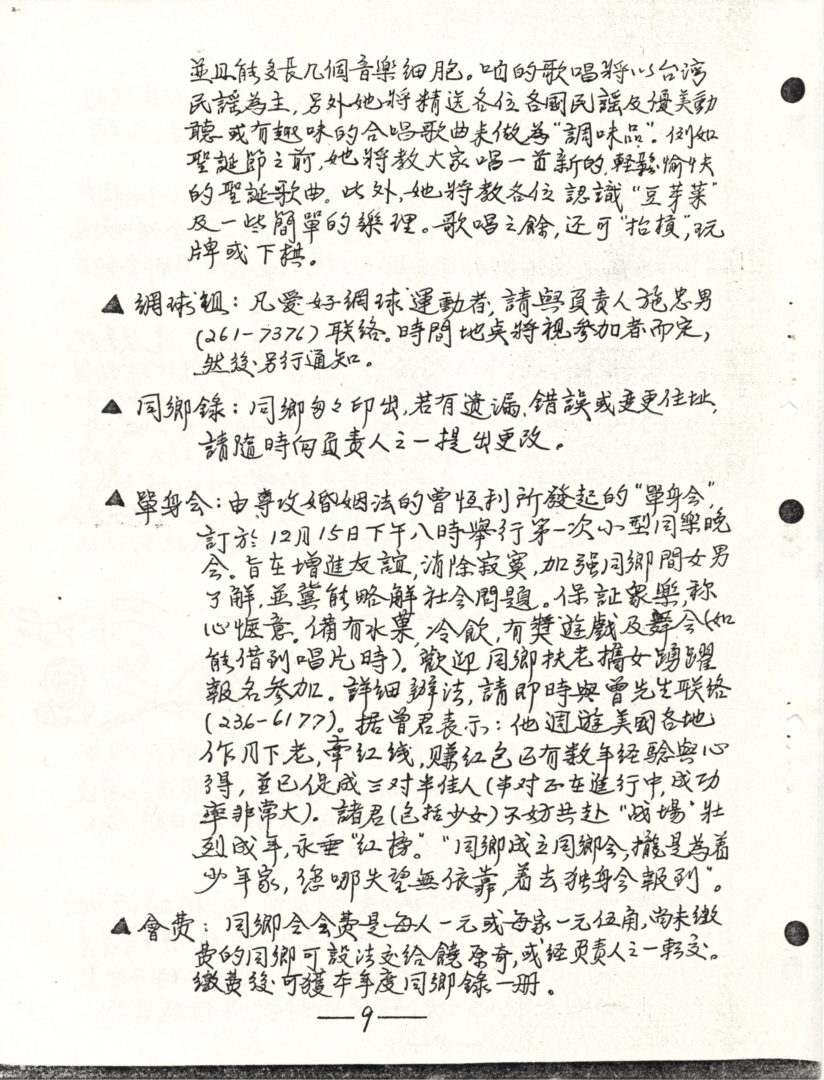 並且能多長几個音樂细胞。咱的歌唱將以台湾
民謠為主，另外她將精送各位各國民謠及優美動
聽或有趣味的合唱歌曲來做為“調味品”。例如
聖誕節之前，她將教大家唱一首新的，輕鬆愉快
的聖誕歌曲。此外，她將教各位認識“豆芽菜”
及一些簡單的樂理。歌唱之餘，还可“抬槓”，玩
牌或下棋。
▲ 網球组：凡愛好網球運動者，請與負責人施忠男
(261-7376) 联络。時間地奌將視参加者而定，
然後另行通知。
▲ 同鄉錄：同鄉匆匆印出，若有遺漏、錯誤或变更住址，
請隨時向負責人之一提出更改。
▲ 單身会：由專攻婚姻法的曾恒利所發起的“單身会”，
訂於12月15日下午八時舉行第一次小型同樂晚
会。旨在增進友誼，消除寂寞，加强同鄉間女男
了解，並冀能略解社会問題。保証家樂，称
心惬意。備有水菓，冷飲，有獎遊戲及舞会(如
能借到唱片時)。歡迎同鄉扶老攜女踴躍
報名參加。詳细辦法，請即時與曾先生联络
(236-6177)。据曾君表示：他週遊美國各地
作月下老，牽红线，赚红包已有数年经验與心
得，並已促成三对半佳人(半对正在進行中，成功
率非常大)。諸君(包括少女)不妨共赴“战場”壯
烈成年，永垂“红榜”。“同鄉成立同鄉会，攏是為着
少年家，您哪失望無依靠，着去独身会報到”。
▲ 會费：同鄉会会费是每人一元或每家一元伍角，尚未缴
费的同鄉可設法交给饒原奇，或经負責人之一転交。
缴费後可獲本年度同鄉錄一册。
—9—